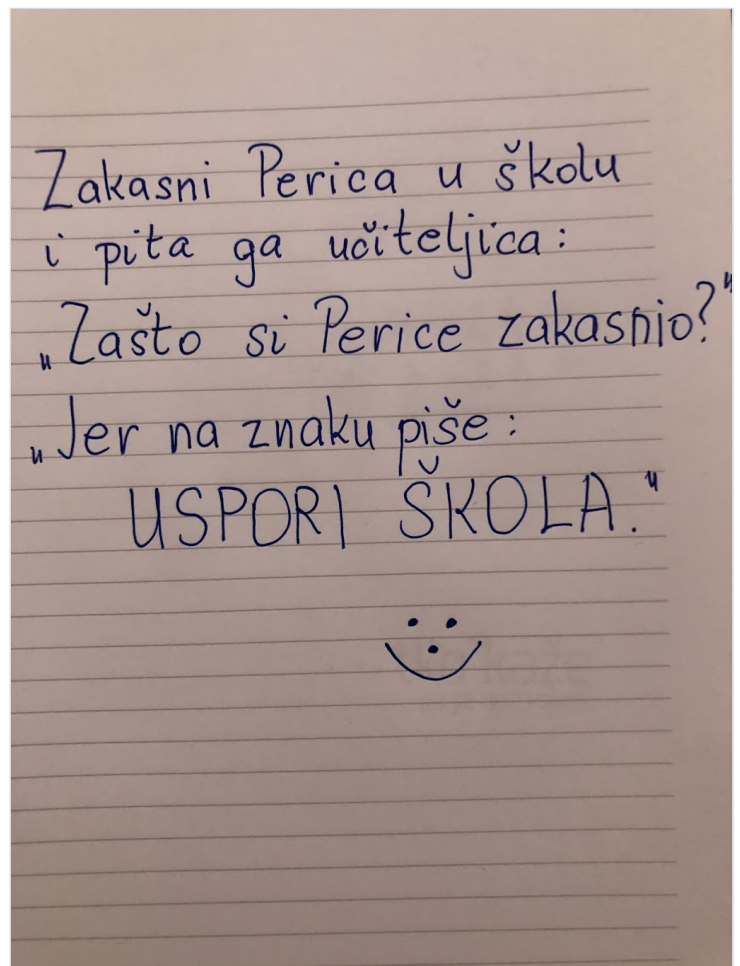 Zakasni Perica u školu
i pita ga učiteljica:
„Zašto si Perice zakasnio?"
„Jer na znaku piše:
USPORI ŠKOLA."